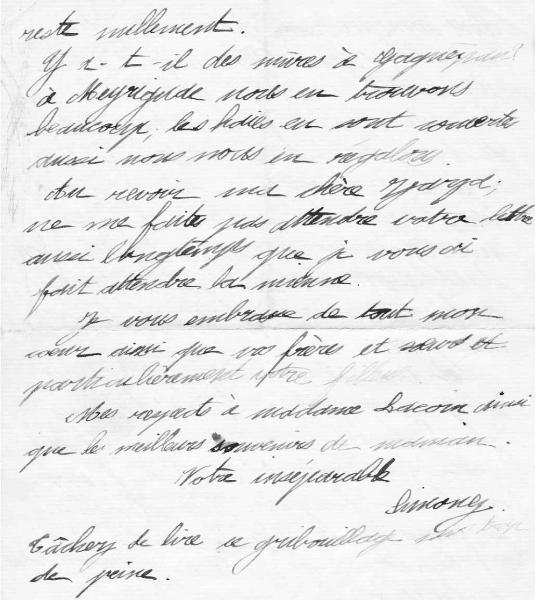 reste nullement.
Y a-t-il des mûres à Gagnepan?
à Meyrignac nous en trouvons
beaucoup, les haies en sont couvertes
aussi nous nous en régalons.
Au revoir ma chère Zaza;
ne me faites pas attendre votre lettre
aussi longtemps que je vous ai
fait attendre la mienne.
Je vous embrasse de tout mon
coeur ainsi que vos frères et soeurs et
particulièrement votre
Mes respects à madame Lacoin ainsi
que les meilleurs souvenirs de maman.
Votre inséparable
Simone
Tâchez de lire ce gribouillage sans trop
de peine.